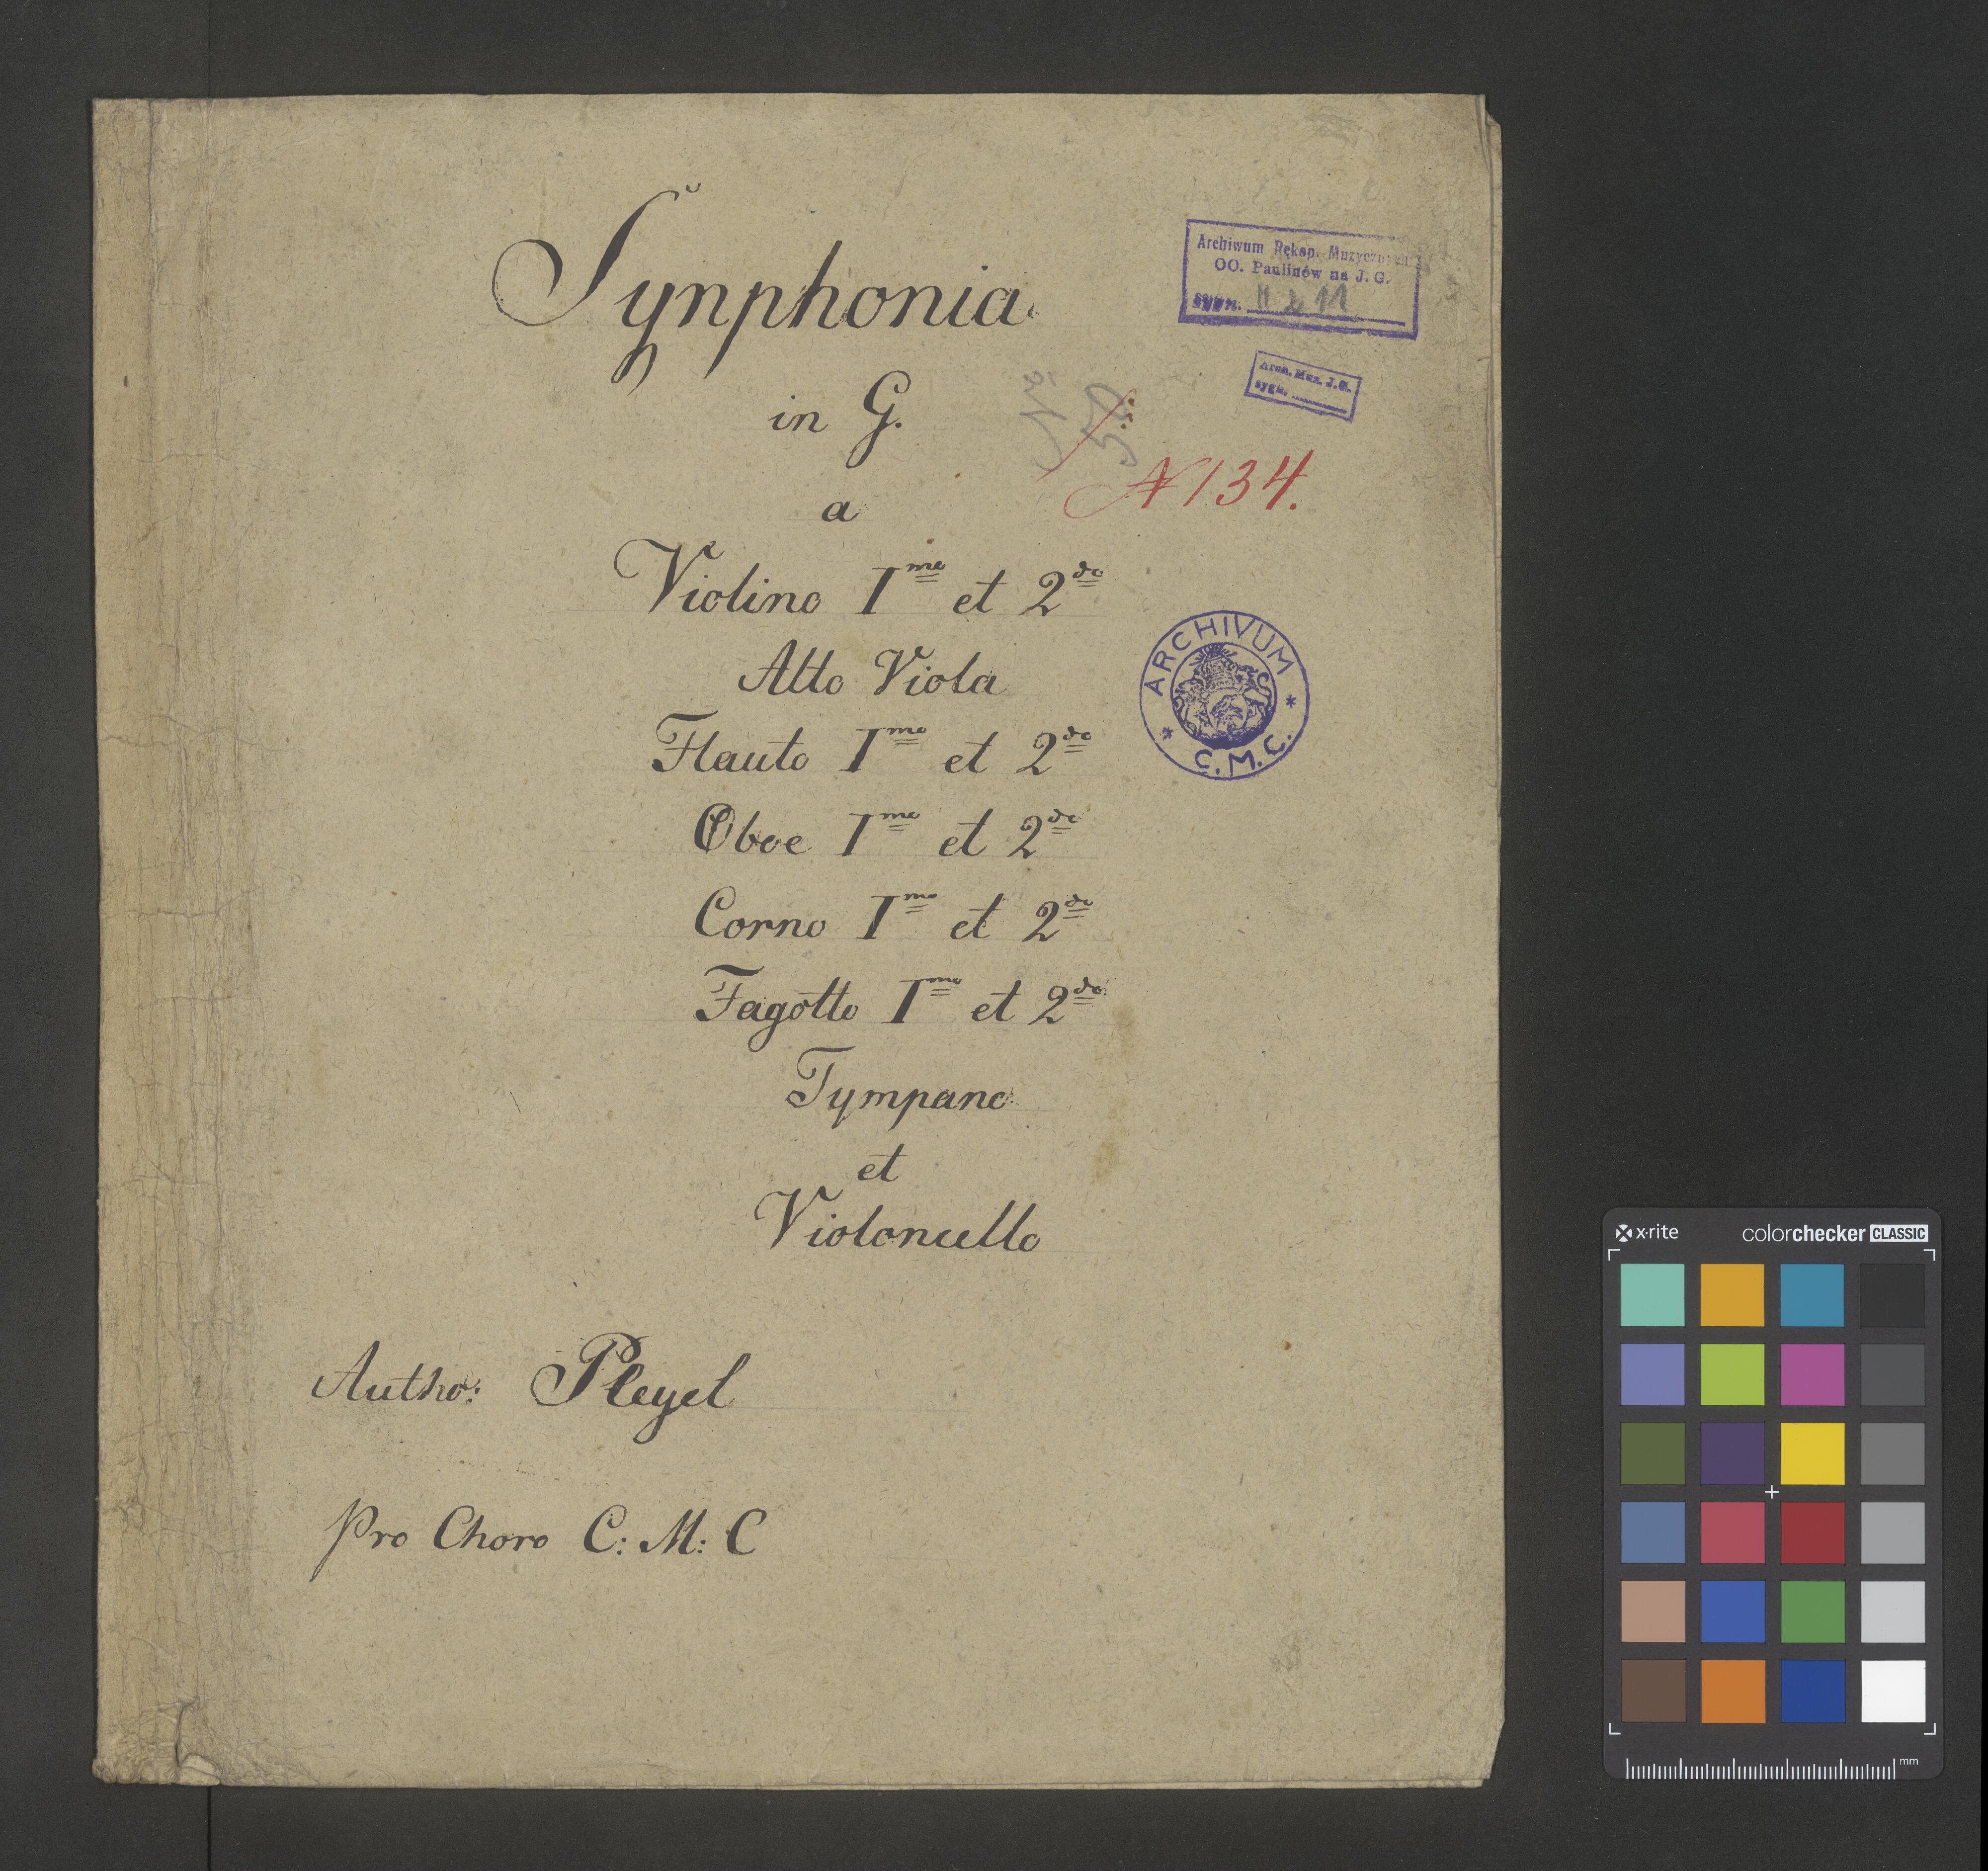 Synphonia
in G.
a
Violino I^mo et 2^do
Alto Viola
Flauto I^mo et 2^do
Oboe I^mo et 2^do
Corno I^mo et 2^do
Fagotto I^mo et 2^do
Tympano
et
Violoncello
Autho: Pleyel
Pro Choro C: M: C
Archiwum Rękop. Muzycznych
OO. Paulinów na J. G.
sygn. II 211
Arch. Muz. J.G.
sygn.
N 134.
ARCHIVUM
C.M.C.
x·rite colorchecker CLASSIC
mm